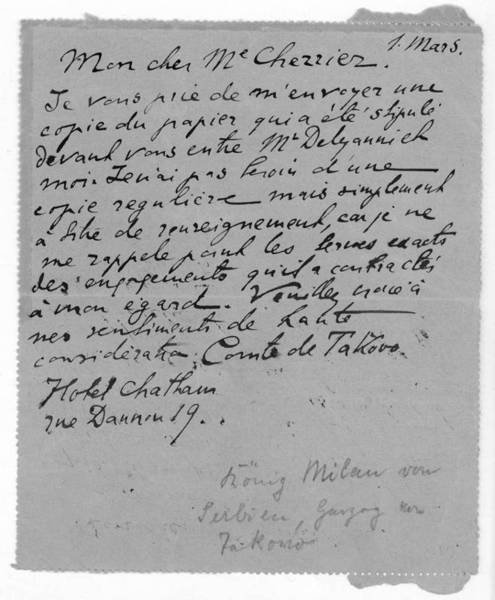 1. Mars.
Mon cher Me Cherrier.
Je vous prie de m'envoyer une
copie du papier qui a été stipulé
devant vous entre Mr Delyanni et
moi. Je n'ai pas besoin d'une
copie reguliere mais simplement
à titre de renseignement, car je ne
me rappele point les termes exacts
des engagements qu'il a contractés
à mon egard. Veuillez croire à
mes sentiments de haute
consideration. Comte de Takovo.
Hotel Chatham
rue Daunou 19.
König Milan von
Serbien,
Takowo